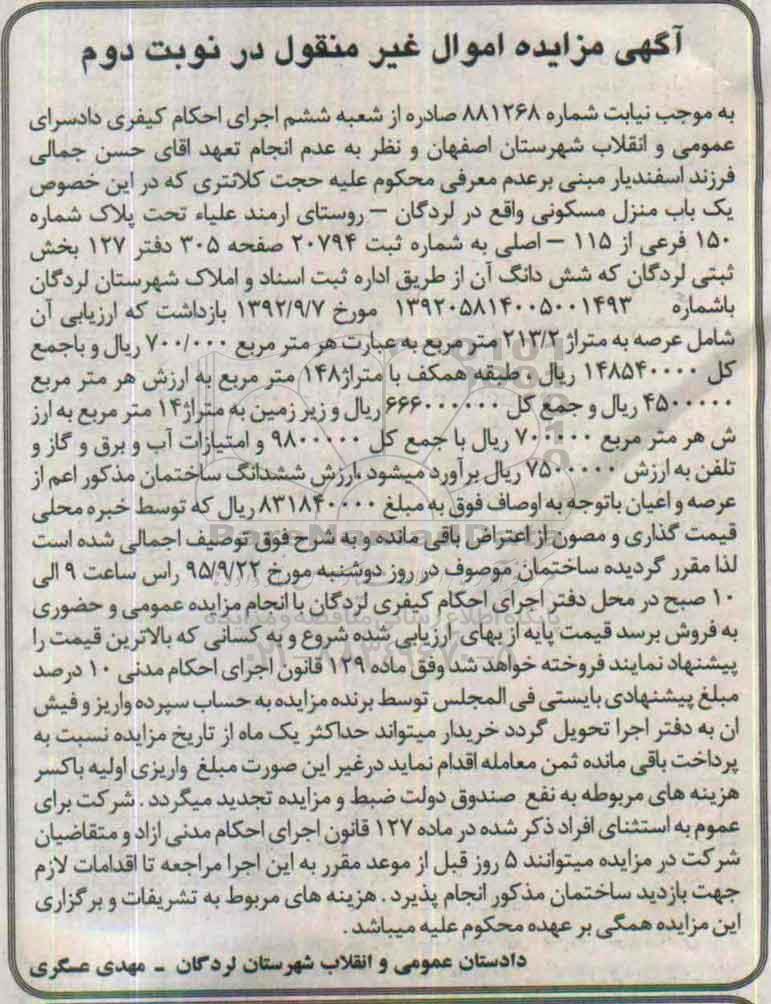 آگهی مزایده اموال غیر منقول در نوبت دوم
به موجب نیابت شماره ۸۸۱۲۶۸ صادره از شعبه ششم اجرای احکام کیفری دادسرای
عمومی و انقلاب شهرستان اصفهان و نظر به عدم انجام تعهد اقای حسن جمالی
فرزند اسفندیار مبنی برعدم معرفی محکوم علیه حجت کلانتری که در این خصوص
یک باب منزل مسکونی واقع در لردگان – روستای ارمند علیاء تحت پلاک شماره
۱۵۰ فرعی از ۱۱۵ – اصلی به شماره ثبت ۲۰۷۹۴ صفحه ۳۰۵ دفتر ۱۲۷ بخش
ثبتی لردگان که شش دانگ آن از طریق اداره ثبت اسناد و املاک شهرستان لردگان
باشماره ۱۳۹۲۰۵۸۱۴۰۰۵۰۰۱۴۹۳ مورخ ۱۳۹۲/۹/۷ بازداشت که ارزیابی آن
شامل عرصه به متراژ ۲۱۳/۲ متر مربع به عبارت هر متر مربع ۷۰۰/۰۰۰ ریال و باجمع
کل ۱۴۸۵۴۰۰۰۰ ریال و طبقه همکف با متراژ۱۴۸ متر مربع به ارزش هر متر مربع
۴۵۰۰۰۰۰ ریال و جمع کل ۶۶۶۰۰۰۰۰۰ ریال و زیر زمین به متراژ۱۴ متر مربع به ارز
ش هر متر مربع ۷۰۰۰۰۰ ریال با جمع کل ۹۸۰۰۰۰۰ و امتیازات آب و برق و گاز و
تلفن به ارزش ۷۵۰۰۰۰۰ ریال برآورد میشود .ارزش ششدانگ ساختمان مذکور اعم از
عرصه و اعیان باتوجه به اوصاف فوق به مبلغ ۸۳۱۸۴۰۰۰۰ ریال که توسط خبره محلی
قیمت گذاری و مصون از اعتراض باقی مانده و به شرح فوق توصیف اجمالی شده است
لذا مقرر گردیده ساختمان موصوف در روز دوشنبه مورخ ۹۵/۹/۲۲ راس ساعت ۹ الی
۱۰ صبح در محل دفتر اجرای احکام کیفری لردگان با انجام مزایده عمومی و حضوری
به فروش برسد قیمت پایه از بهای ارزیابی شده شروع و به کسانی که بالاترین قیمت را
پیشنهاد نمایند فروخته خواهد شد وفق ماده ۱۲۹ قانون اجرای احکام مدنی ۱۰ درصد
مبلغ پیشنهادی بایستی فی المجلس توسط برنده مزایده به حساب سپرده واریز و فیش
ان به دفتر اجرا تحویل گردد خریدار میتواند حداکثر یک ماه از تاریخ مزایده نسبت به
پرداخت باقی مانده ثمن معامله اقدام نماید درغیر این صورت مبلغ واریزی اولیه باکسر
هزینه های مربوطه به نفع صندوق دولت ضبط و مزایده تجدید میگردد . شرکت برای
عموم به استثنای افراد ذکر شده در ماده ۱۲۷ قانون اجرای احکام مدنی ازاد و متقاضیان
شرکت در مزایده میتوانند ۵ روز قبل از موعد مقرر به این اجرا مراجعه تا اقدامات لازم
جهت بازدید ساختمان مذکور انجام پذیرد . هزینه های مربوط به تشریفات و برگزاری
این مزایده همگی بر عهده محکوم علیه میباشد .
دادستان عمومی و انقلاب شهرستان لردگان – مهدی عسگری